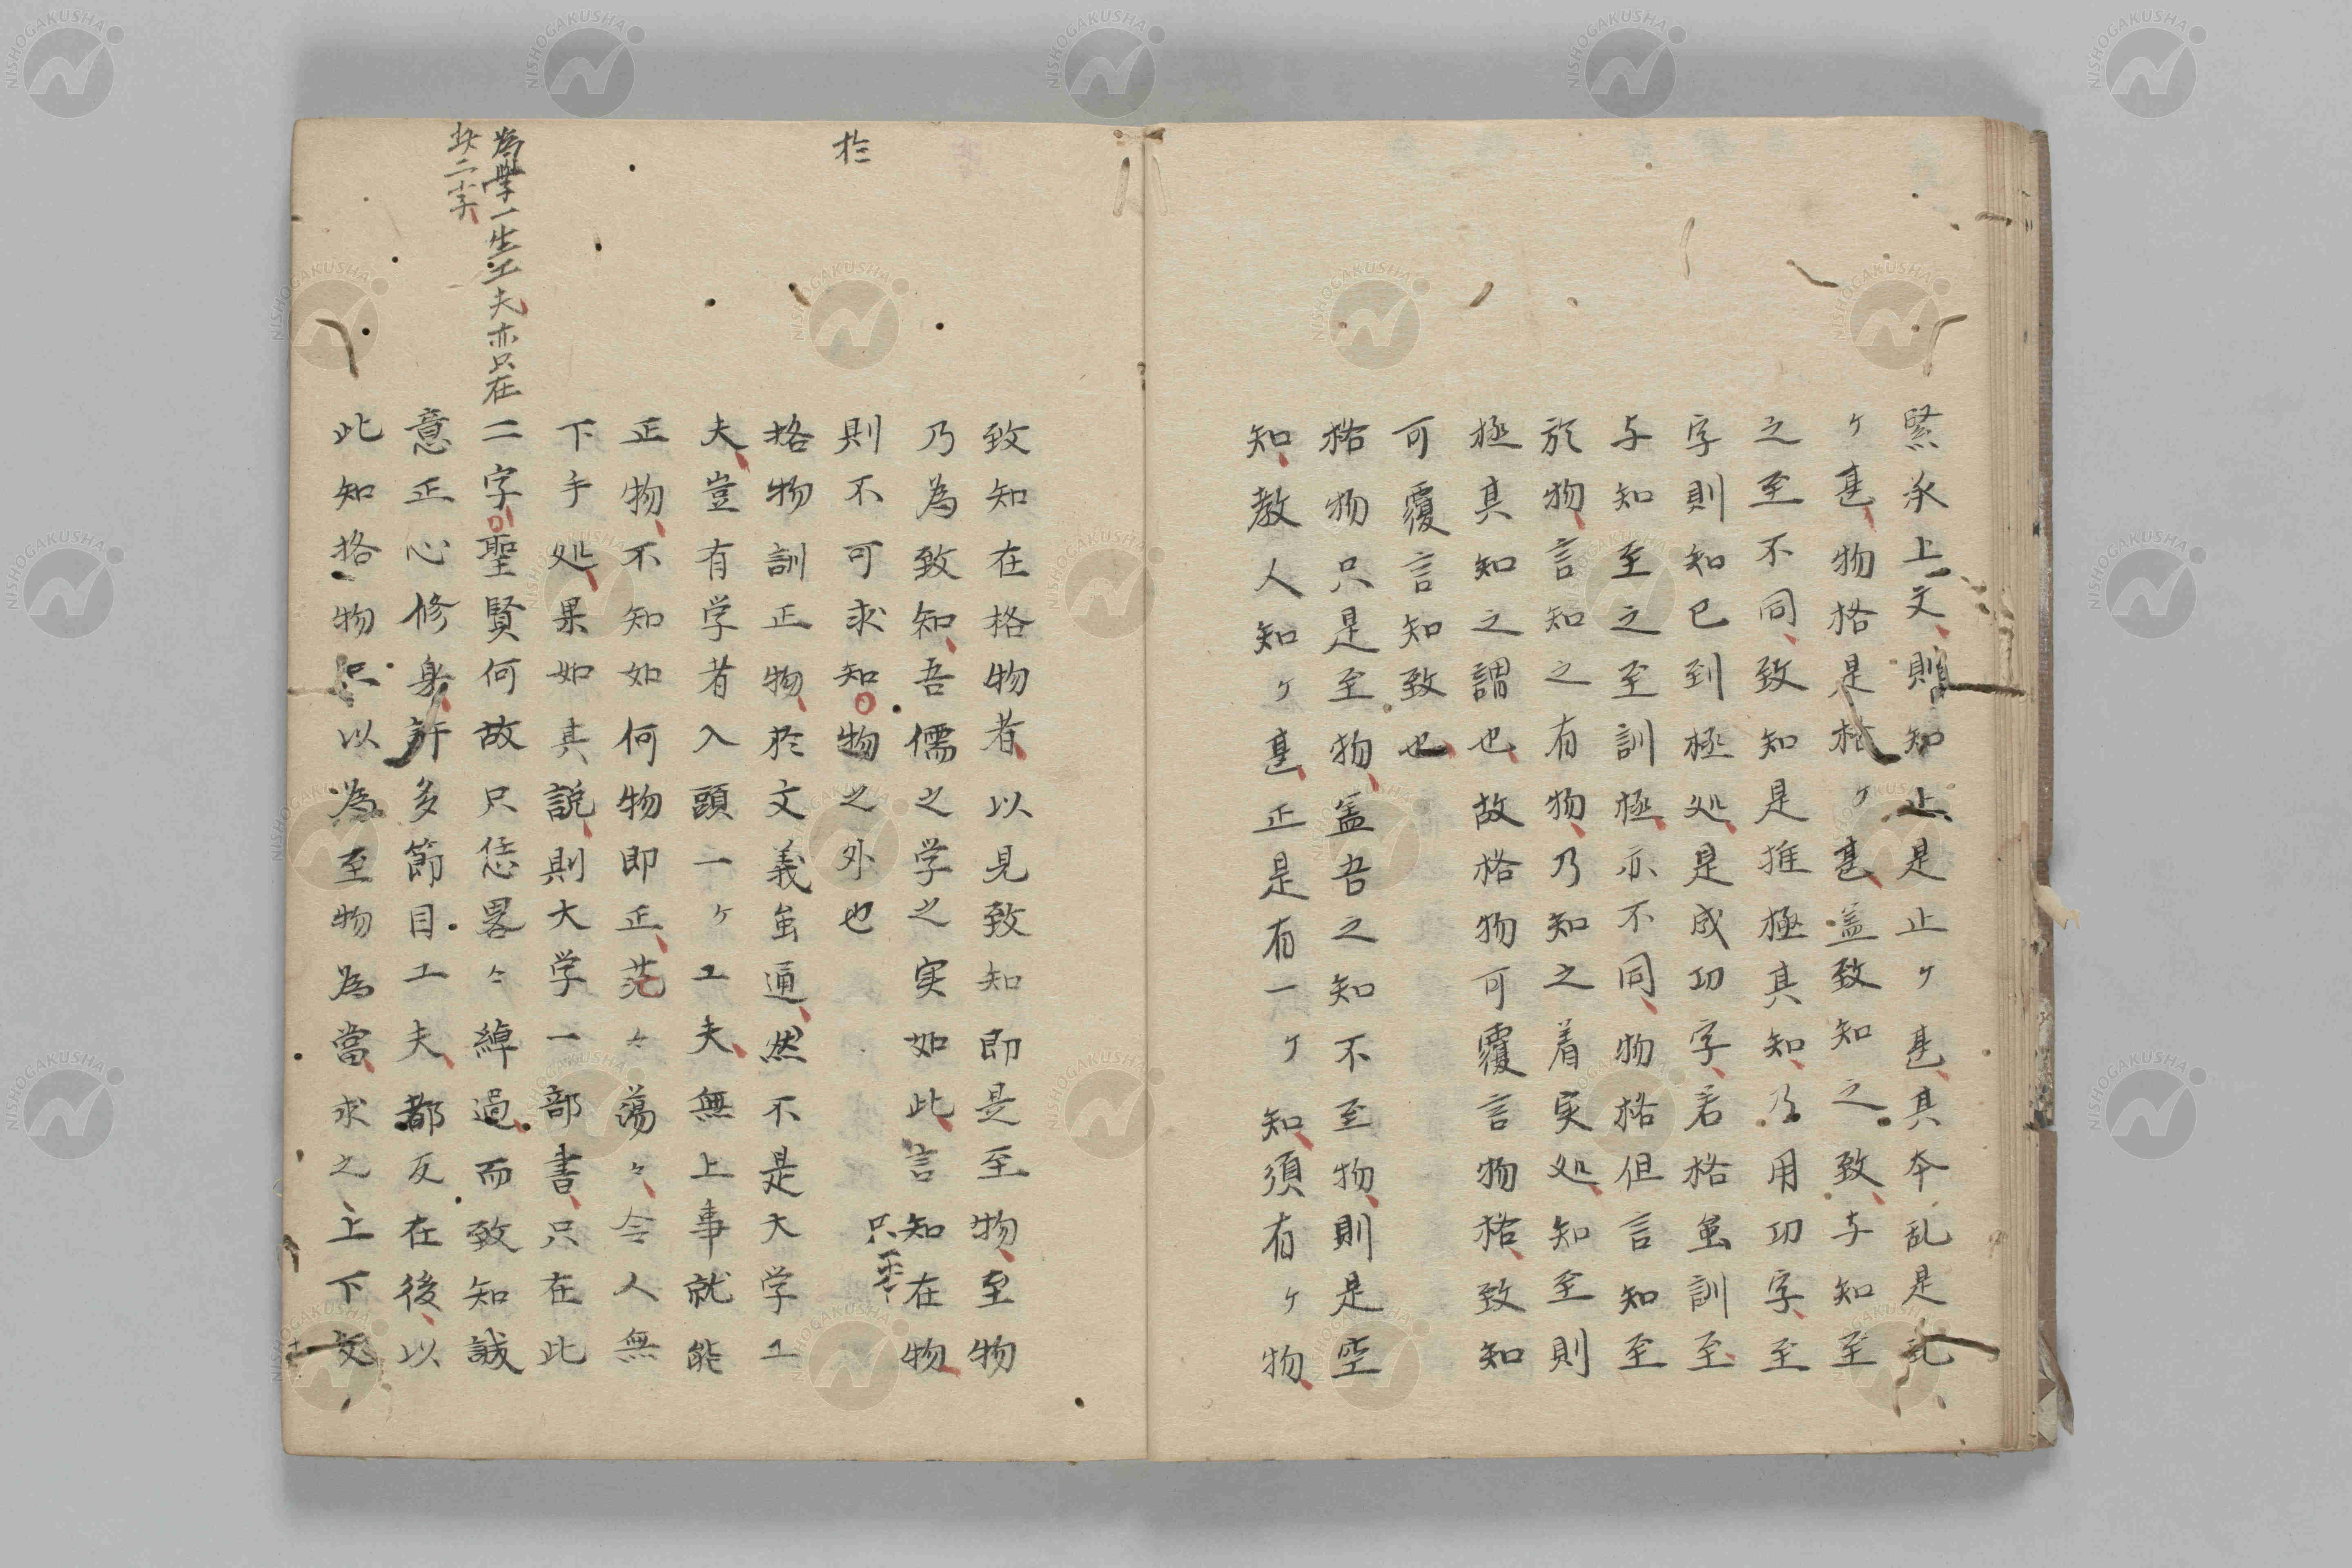 緊承上文則知止是止ケ甚其本乱是乱
ケ甚物格是格ケ甚盖致知之致与知至
之至不同致知是推極其知乃用功字至
字則知已到極処是成功字若格虽訓至
与知至之至訓極亦不同物格但言知至
於物言知之有物乃知之着実処知至則
極其知之謂也故格物可覆言物格致知
可覆言知致也
格物只是至物盖吾之知不至物則是空
知教人知ケ甚正是有一ケ知須有ケ物
致知在格物者以見致知即是至物至物
乃為致知吾儒之学之実如此言知在物
只平
則不可求知物之外也
於
格物訓正物於文義虽通然不是大学工
夫豈有学者入頭一ケ工夫無上事就能
正物不知如何物即正茫々蕩々令人無
下手処果如其説則大学一部書只在此
為學一生工夫亦只在
此二字
二字聖賢何故只恁畧々綽過而致知誠
意正心修身許多節目工夫都反在後以
此知格物只以為至物為當求之上下文